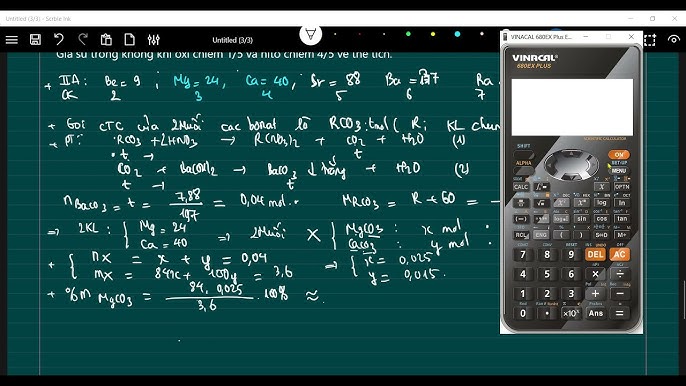 Untitled (3/3) - Scrble Ink
Untitled (3/3)
Giả sử trong không khí oxi chiếm 1/5 và nitơ chiếm 4/5 về thể tích.
+ IIA : Be = 9 ; Mg = 24, Ca = 40, Sr = 88 Ba = 137 Ra =
CK 2 3 4 5 6 7
+ Gọi CTC của 2 Muối cacbonat là RCO3 : t mol ( R ; KL chun
+ pt: RCO3 + 2HNO3 → R(NO3)2 + CO2 + H2O (1)
t → t
CO2 + Ba(OH)2 → BaCO3 ↓ trắng + H2O (2)
t → t
nBaCO3 = t = 7,88/197 = 0,04 mol . MRCO3 = R + 60 =
⇒ 2KL : { Mg = 24 Ca = 40 ⇒ 2 Muối X { MgCO3 : x mol CaCO3 : y mol
+ { nX = x + y = 0,04 mX = 84x + 100y = 3,6 ⇒ { x = 0,025 y = 0,015 .
+ %m MgCO3 = 84 . 0,025 / 3,6 . 100% ≈
VINACAL 680EX Plus E...
VINACAL
680EX PLUS
SHIFT
ALPHA
ON
SET-UP
MENU
CALC
OPTN
log
sin
cos
tan
RCL
ENG
(
)
S⇔D
M+
7 8 9 DEL AC
4 5 6 × ÷
1 2 3 + -
0 . ×10ˣ Ans =